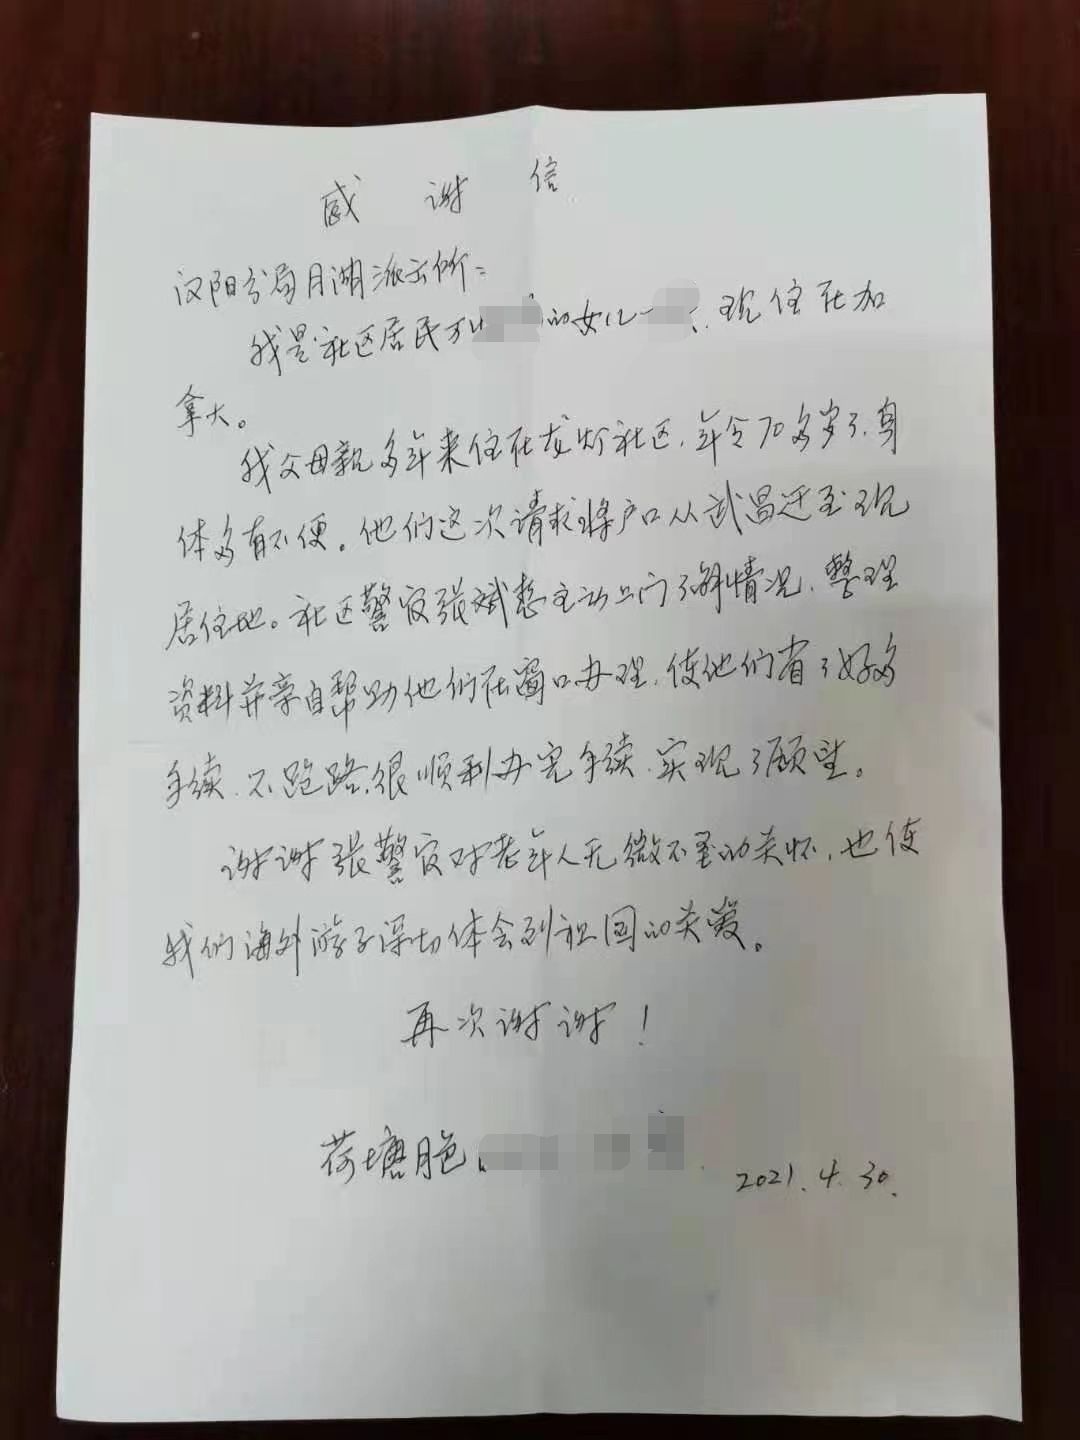 感谢信
汉阳分局月湖派出所：
我是社区居民万 的女儿 、现住在加
拿大。
我父母亲多年来住在龙灯社区，年令70多岁了，身
体多有不便。他们这次请求将户口从武昌迁至现
居住地。社区警官张斌憨主动上门了解情况，整理
资料并亲自帮助他们在窗口办理，使他们省了好多
手续，不跑路，很顺利办完手续，实现了愿望。
谢谢张警官对老年人无微不至的关怀，也使
我们海外游子深切体会到祖国的关爱。
再次谢谢！
荷塘月色
2021.4.30.